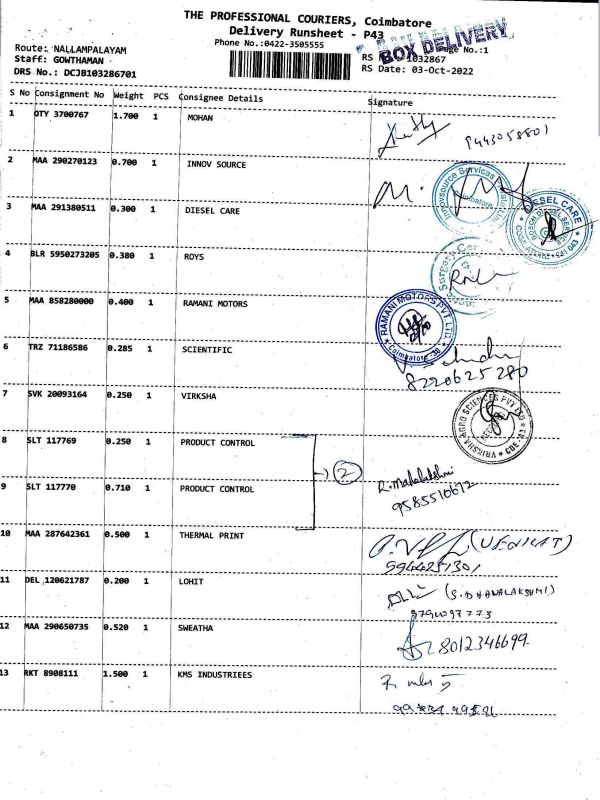 THE PROFESSIONAL COURIERS, Coimbatore
Delivery Runsheet - P43
Phone No.:0422-3505555
BOX DELIVERY
Page No.:1
Route: NALLAMPALAYAM
Staff: GOWTHAMAN
DRS No.: DCJB103286701
RS 1032867
RS Date: 03-Oct-2022
S No Consignment No Weight PCS Consignee Details Signature
1 OTY 3700767 1.700 1 MOHAN 9443058801
2 MAA 290270123 0.700 1 INNOV SOURCE
3 MAA 291380511 0.300 1 DIESEL CARE
DIESEL CARE
4 BLR 5950273205 0.380 1 ROYS
5 MAA 858280000 0.400 1 RAMANI MOTORS
RAMANI MOTORS PVT. LTD.
Coimbatore
6 TRZ 71186586 0.285 1 SCIENTIFIC
8220625280
7 SVK 20093164 0.250 1 VIRKSHA
VRIKSHA AGRO SCIENCES PVT LTD
8 SLT 117769 0.250 1 PRODUCT CONTROL
2
R. Mahalakshmi
9585510672
9 SLT 117770 0.710 1 PRODUCT CONTROL
10 MAA 287642361 0.500 1 THERMAL PRINT
(VENKAT)
5944251301
11 DEL 120621787 0.200 1 LOHIT (S.DHANALAKSHMI)
9790097773
12 MAA 290650735 0.520 1 SWEATHA 8012346699
13 RKT 8908111 1.500 1 KMS INDUSTRIEES